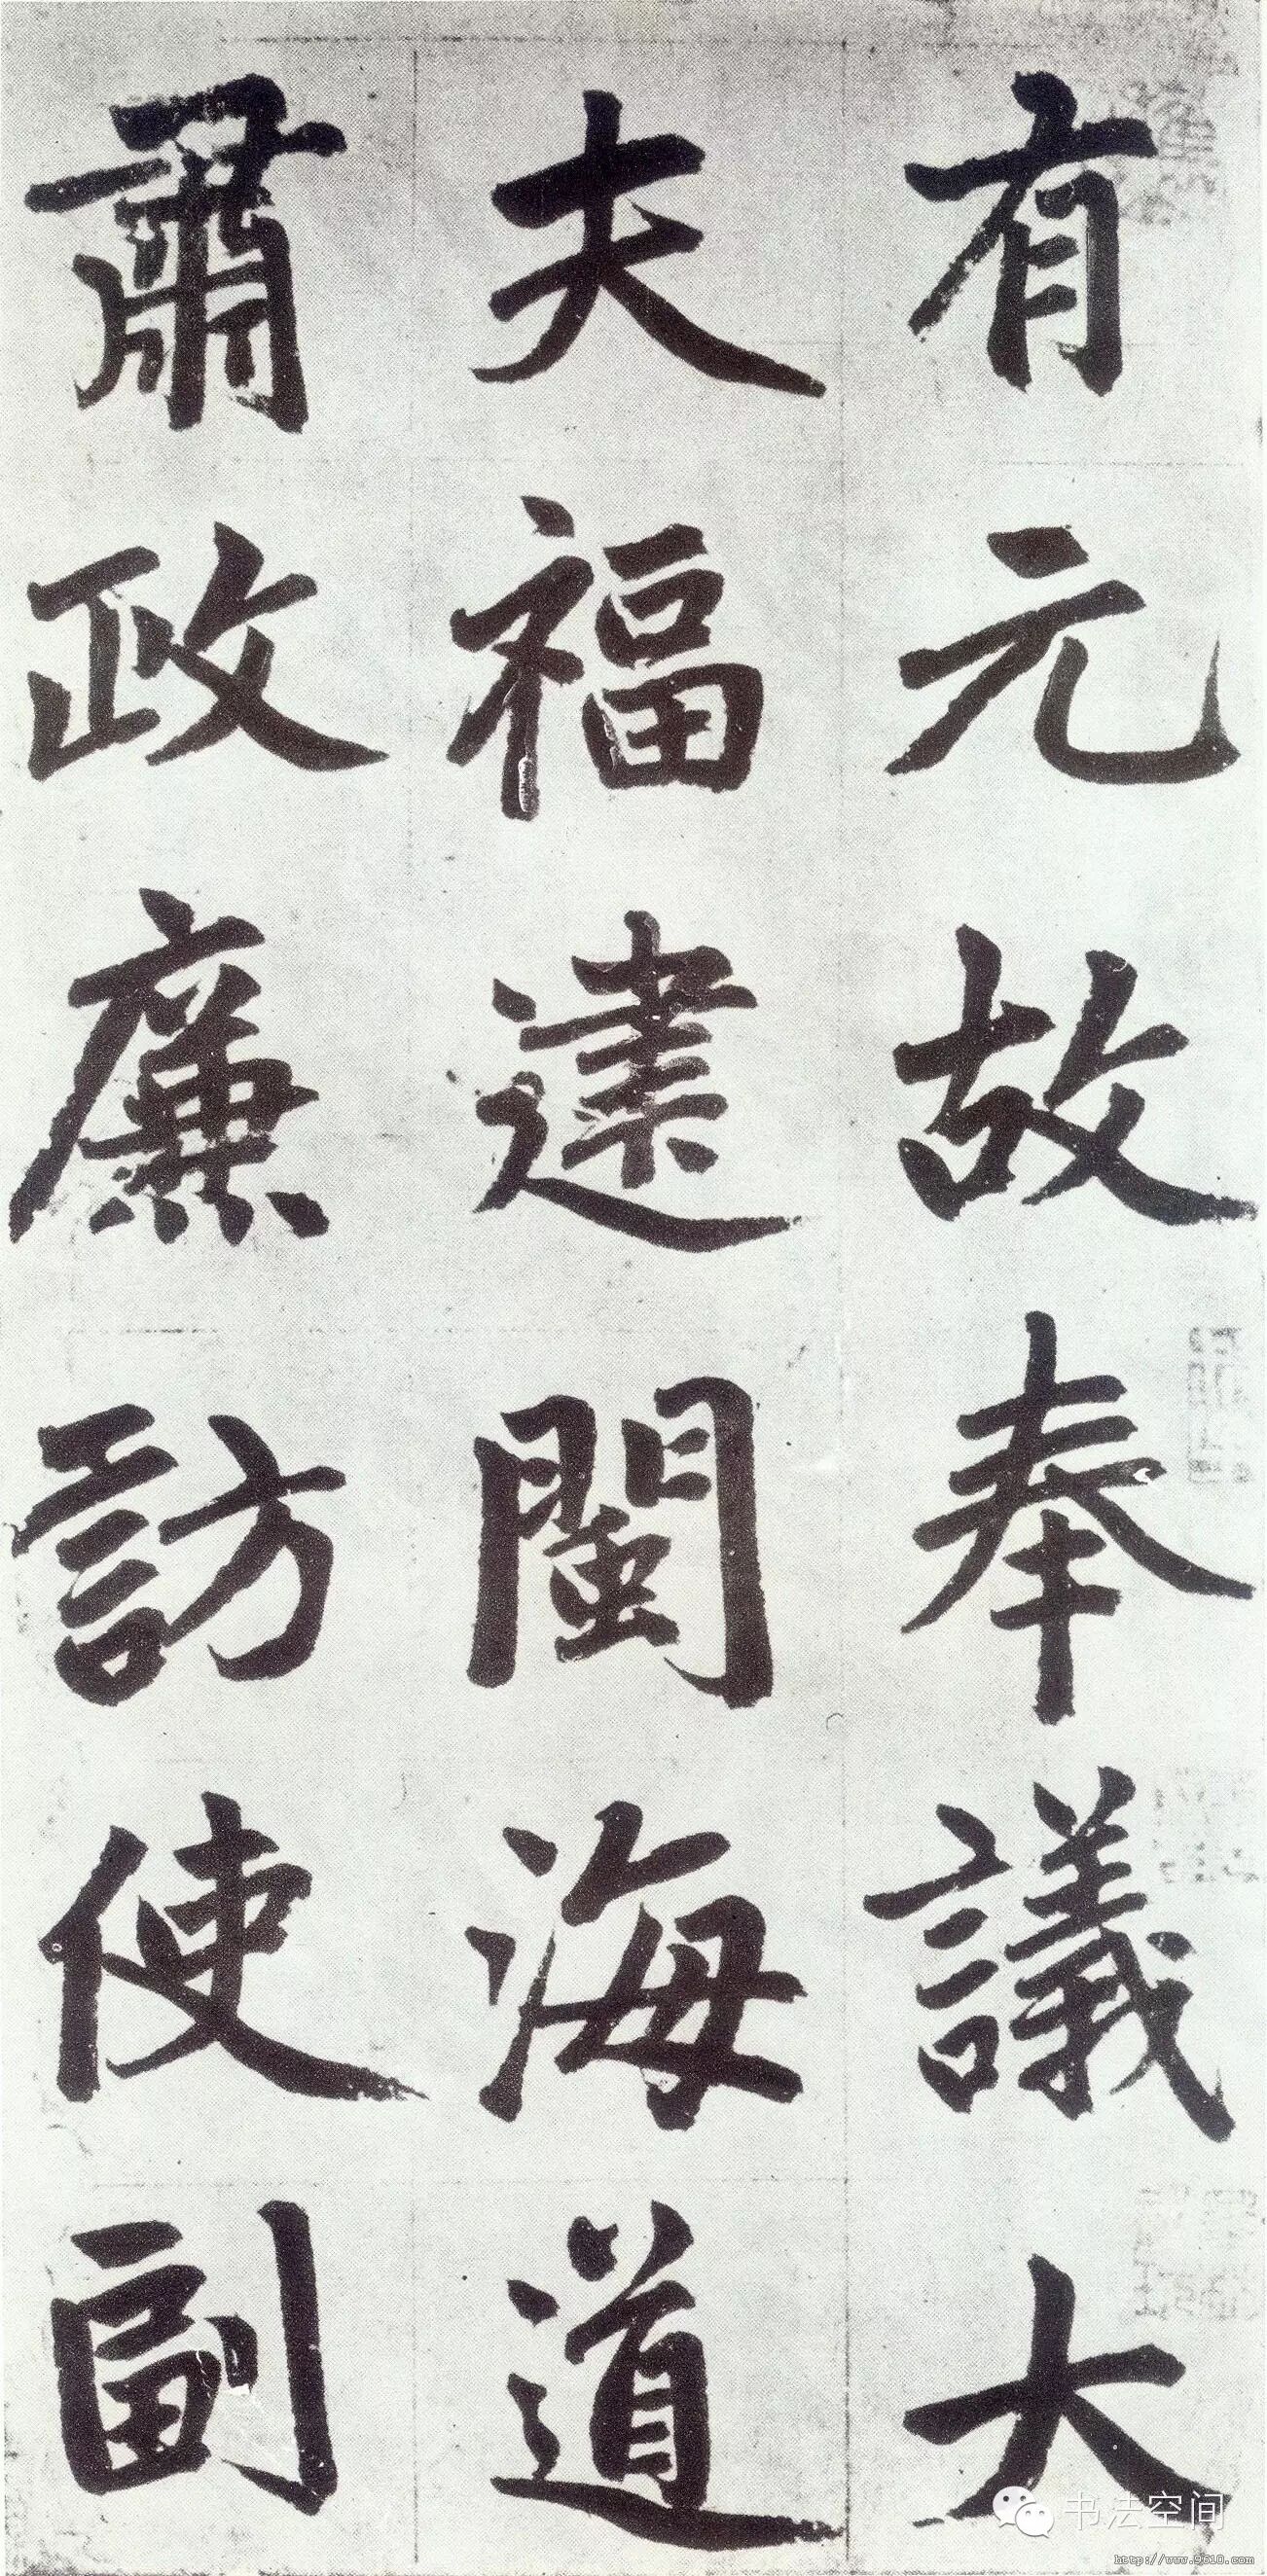 有元故奉議大
夫福建閩海道
肅政廉訪使副
书法空间
http://www.9610.com